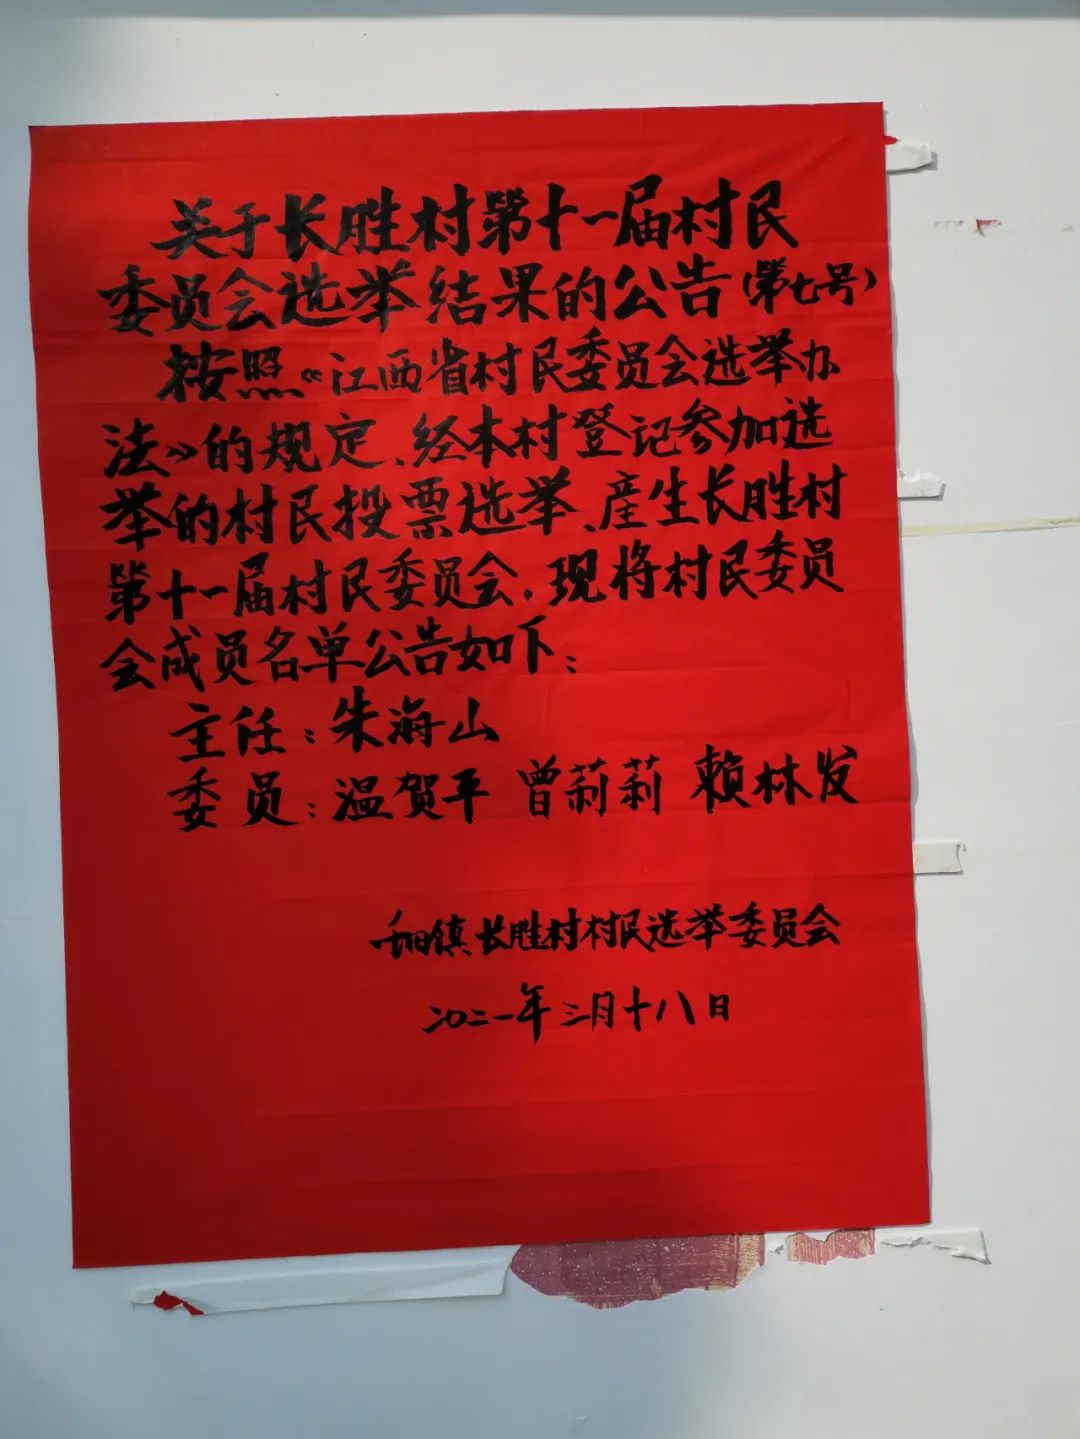 关于长胜村第十一届村民
委员会选举结果的公告（第七号）
按照《江西省村民委员会选举办
法》的规定、经本村登记参加选
举的村民投票选举、産生长胜村
第十一届村民委员会。现将村民委员
会成员名单公告如下：
主任：朱海山
委员：温贺平 曾莉莉 赖林发
镇长胜村村民选举委员会
二〇二一年三月十八日